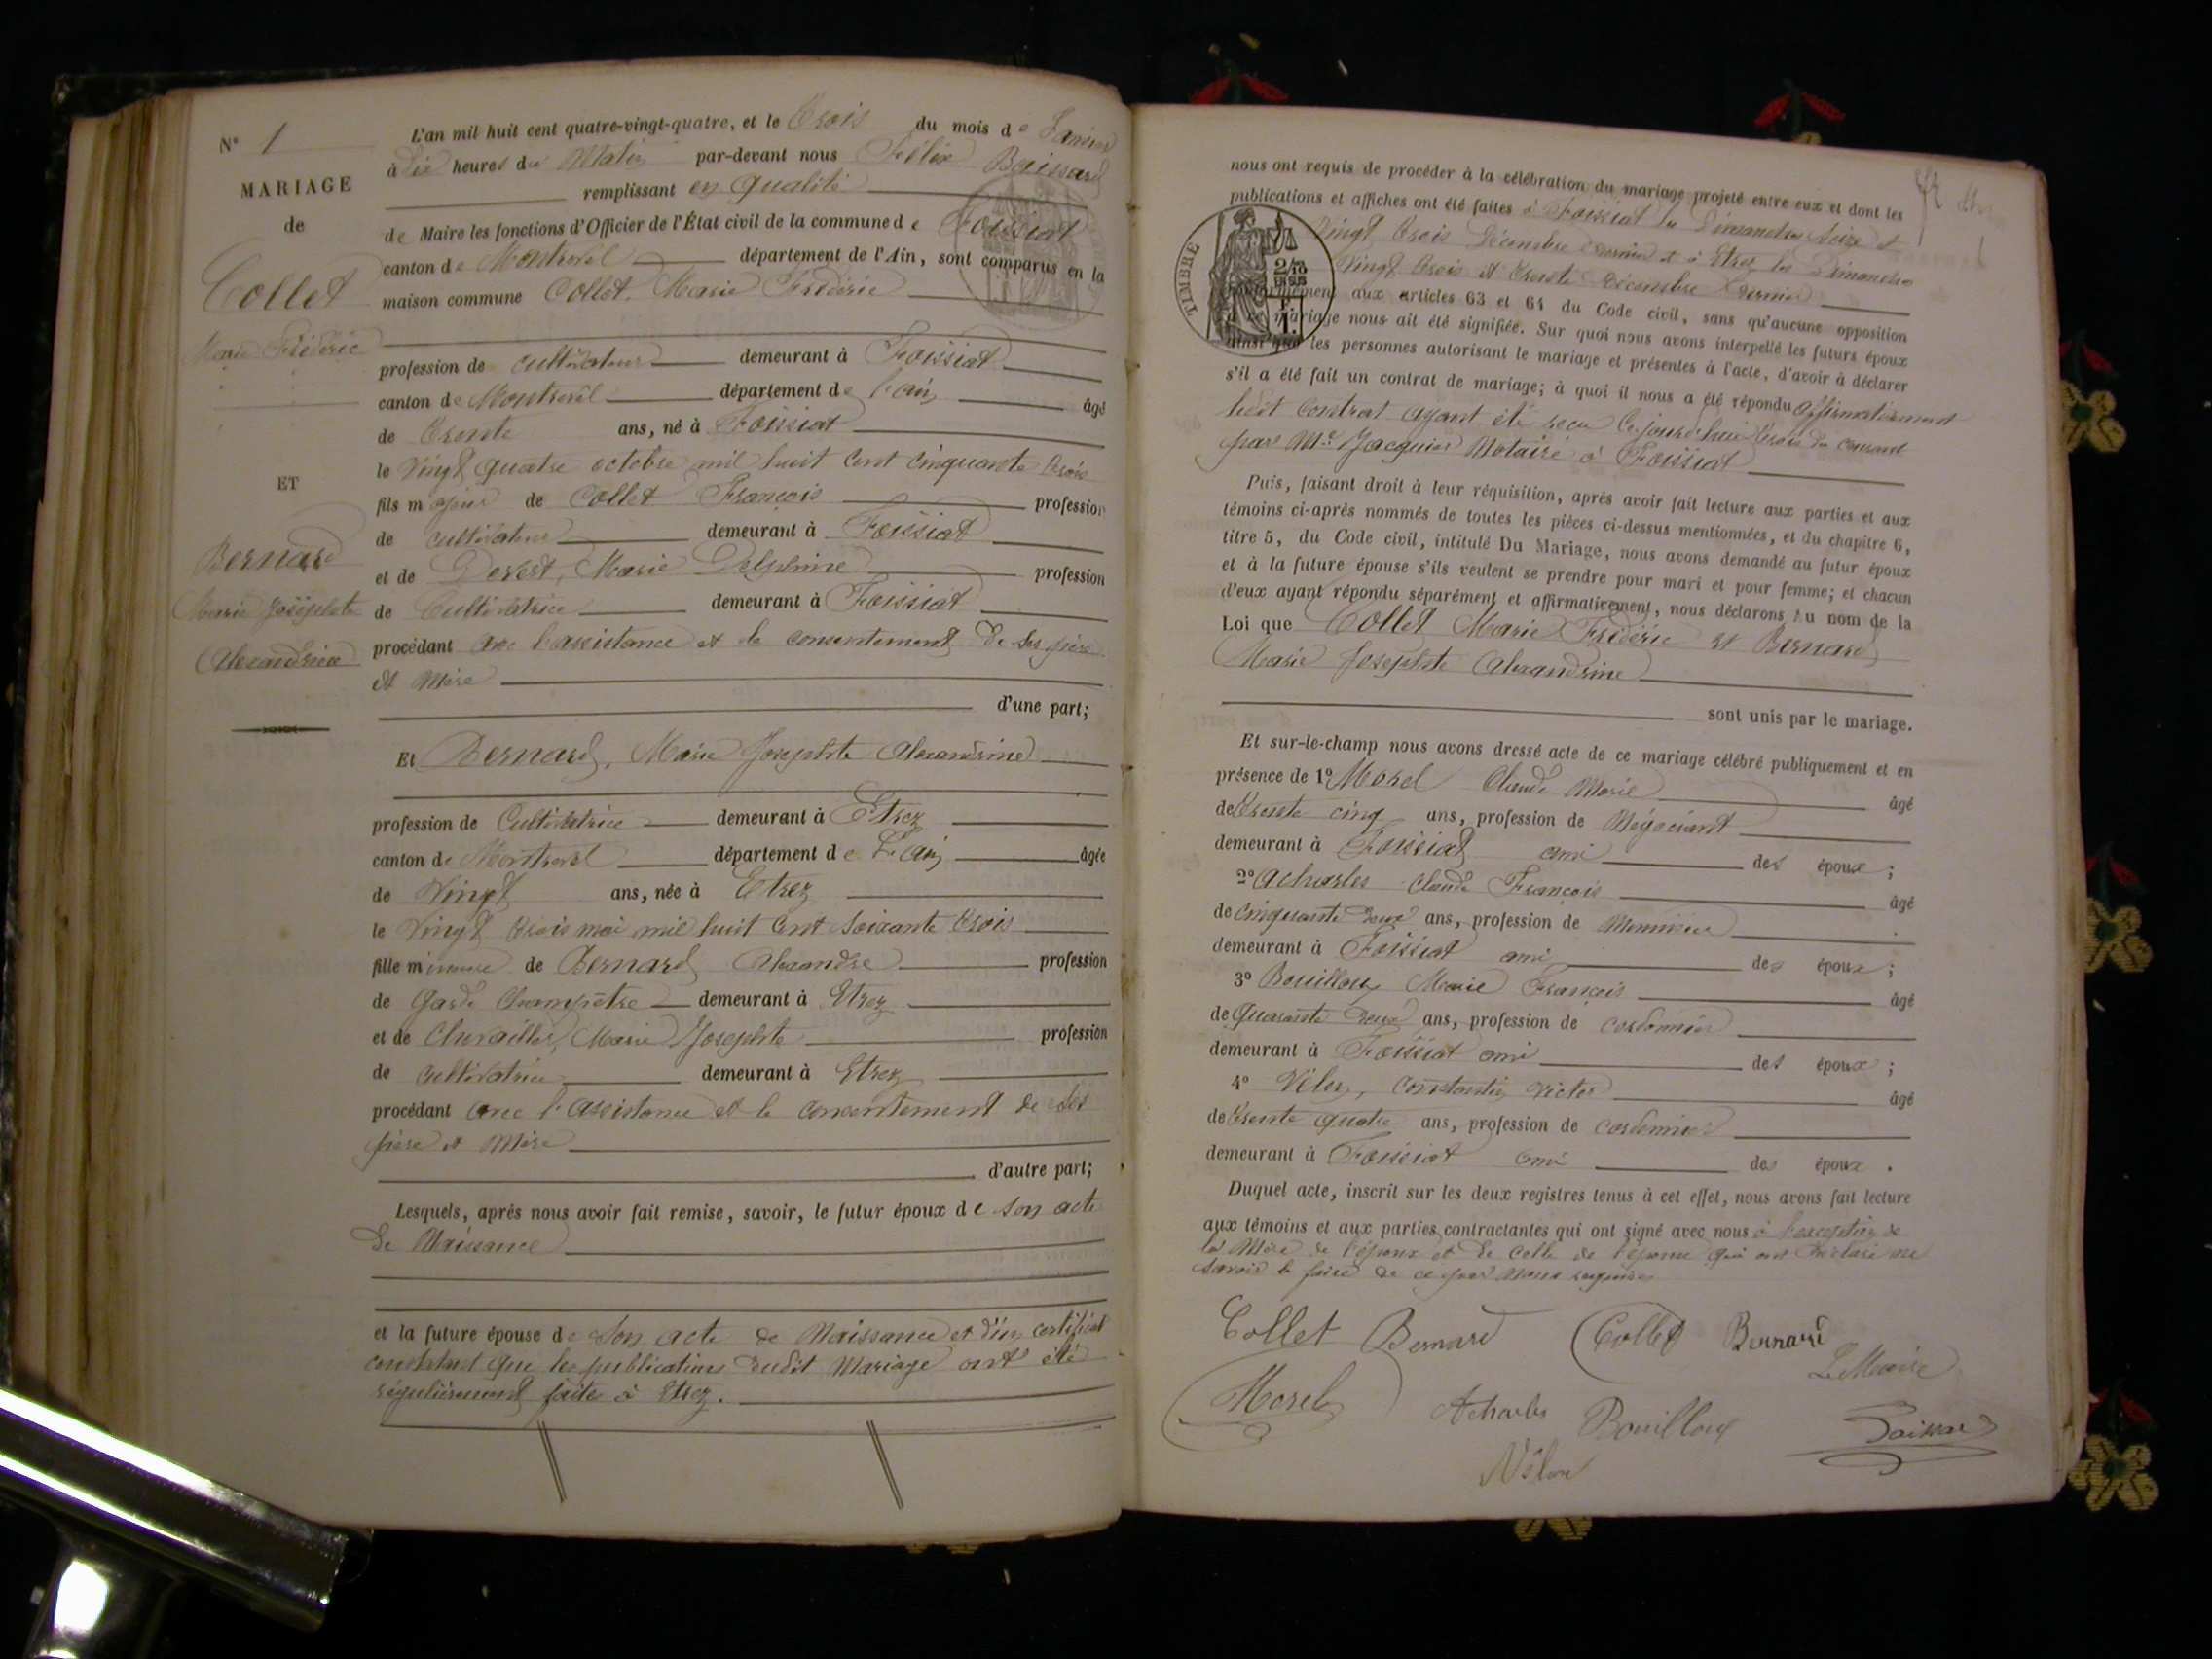 N° 1
MARIAGE
de
Collet
Marie Frédéric
ET
Bernard
Marie Josephte
Alexandrine
L'an mil huit cent quatre-vingt-quatre, et le Trois du mois de Janvier
à dix heures du Matin par-devant nous Félix Buissard
remplissant en qualité
de Maire les fonctions d'Officier de l'État civil de la commune de Foissiat
canton de Montrevel département de l'Ain, sont comparus en la
maison commune Collet, Marie Frédéric
profession de cultivateur demeurant à Foissiat
canton de Montrevel département de l'ain âgé
de Trente ans, né à Foissiat
le Vingt quatre octobre mil huit cent cinquante trois
fils majeur de Collet François profession
de cultivateur demeurant à Foissiat
et de Devest, Marie Delphine profession
de Cultivatrice demeurant à Foissiat
procédant avec l'assistance et le consentement de ses père
et Mère
d'une part;
Et Bernard, Marie Josephte Alexandrine
profession de Cultivatrice demeurant à Etrez
canton de Montrevel département de L'ain âgée
de Vingt ans, née à Etrez
le Vingt trois mai mil huit cent soixante trois
fille mineure de Bernard Alexandre profession
de Garde Champêtre demeurant à Etrez
et de Chevailler, Marie Josephte profession
de cultivatrice demeurant à Etrez
procédant avec l'assistance et le consentement de ses
père et Mère
d'autre part;
Lesquels, après nous avoir fait remise, savoir, le futur époux de son acte
de Naissance
et la future épouse de son acte de Naissance et d'un certificat
constatant que les publications dudit Mariage ont été
régulièrement faite à Etrez.
nous ont requis de procéder à la célébration du mariage projeté entre eux et dont les
publications et affiches ont été faites à Foissiat les Dimanches seize et
Vingt trois Décembre dernier et à Etrez les Dimanches
Vingt trois et trente Décembre dernier
TIMBRE
2/10
aux articles 63 et 64 du Code civil, sans qu'aucune opposition
mariage nous ait été signifiée. Sur quoi nous avons interpellé les futurs époux
ainsi que les personnes autorisant le mariage et présentes à l'acte, d'avoir à déclarer
s'il a été fait un contrat de mariage; à quoi il nous a été répondu affirmativement
ledit contrat ayant été reçu Cejourd'hui trois du courant
par Me Jacquier Notaire à Foissiat
Puis, faisant droit à leur réquisition, après avoir fait lecture aux parties et aux
témoins ci-après nommés de toutes les pièces ci-dessus mentionnées, et du chapitre 6,
titre 5, du Code civil, intitulé Du Mariage, nous avons demandé au futur époux
et à la future épouse s'ils veulent se prendre pour mari et pour femme; et chacun
d'eux ayant répondu séparément et affirmativement, nous déclarons au nom de la
Loi que Collet Marie Frédéric et Bernard
Marie Josephte Alexandrine
sont unis par le mariage.
Et sur-le-champ nous avons dressé acte de ce mariage célébré publiquement et en
présence de 1° Morel Claude Marie âgé
de trente cinq ans, profession de Négociant
demeurant à Foissiat ami des époux;
2° Acharles Claude François âgé
de cinquante deux ans, profession de Menuisier
demeurant à Foissiat ami des époux;
3° Bouilloux Marie François âgé
de Quarante deux ans, profession de cordonnier
demeurant à Foissiat ami des époux;
4° Vélon, Constantin Victor âgé
de trente quatre ans, profession de cordonnier
demeurant à Foissiat ami des époux.
Duquel acte, inscrit sur les deux registres tenus à cet effet, nous avons fait lecture
aux témoins et aux parties contractantes qui ont signé avec nous à l'exception de
la Mère de l'époux et de celle de l'épouse qui ont déclaré ne
savoir le faire de ce par nous requises
Collet Bernard Collet Bernard
Le Maire
Morel Acharles Bouilloux Buissard
Vélon